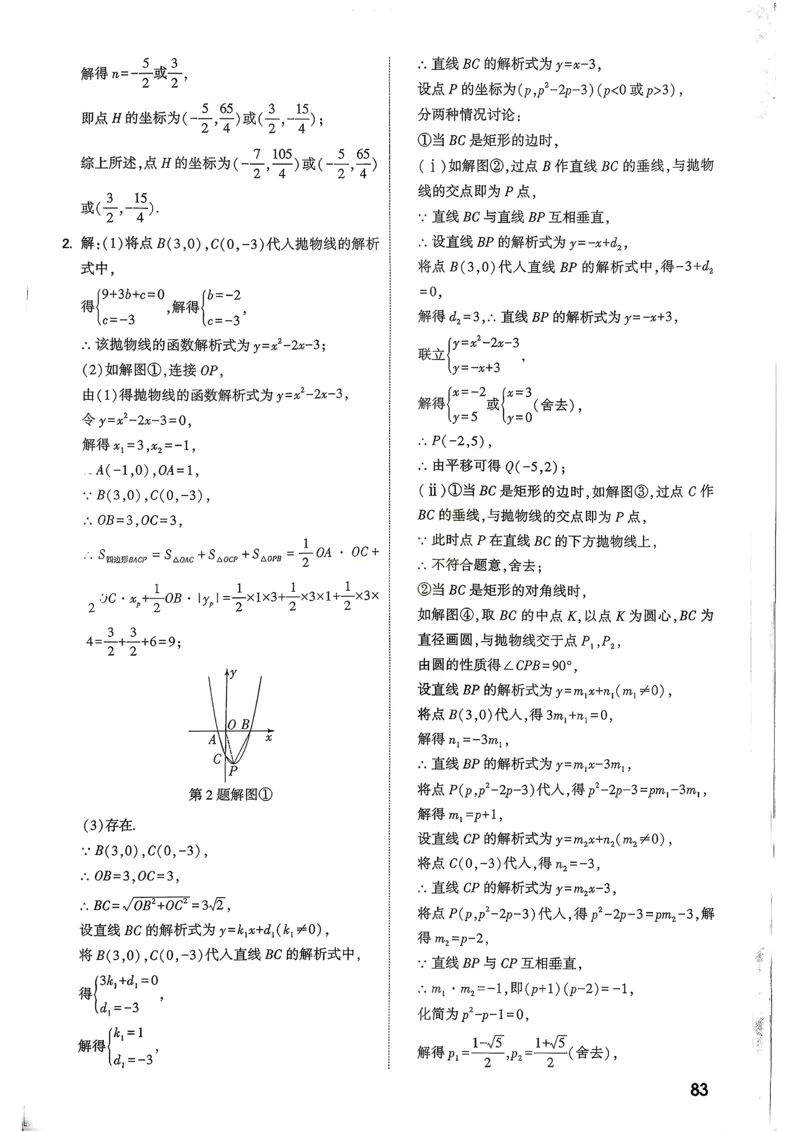 解得n=-5/2或3/2,
即点H的坐标为(-5/2,65/4)或(3/2,-15/4);
综上所述,点H的坐标为(-7/2,105/4)或(-5/2,65/4)
或(3/2,-15/4).
2. 解:(1)将点B(3,0),C(0,-3)代入抛物线的解析
式中,
得{9+3b+c=0 c=-3,解得{b=-2 c=-3,
∴该抛物线的函数解析式为y=x²-2x-3;
(2)如解图①,连接OP,
由(1)得抛物线的函数解析式为y=x²-2x-3,
令y=x²-2x-3=0,
解得x₁=3,x₂=-1,
A(-1,0),OA=1,
∵B(3,0),C(0,-3),
∴OB=3,OC=3,
∴S四边形BACP=S△OAC+S△OCP+S△OPB=1/2OA·OC+
OC·xₚ+1/2OB·|yₚ|=1/2×1×3+1/2×3×1+1/2×3×
4=3/2+3/2+6=9;
y
O B
A x
C
P
第2题解图①
(3)存在.
∵B(3,0),C(0,-3),
∴OB=3,OC=3,
∴BC=√(OB²+OC²)=3√2,
设直线BC的解析式为y=k₁x+d₁(k₁≠0),
将B(3,0),C(0,-3)代入直线BC的解析式中,
得{3k₁+d₁=0 d₁=-3,
解得{k₁=1 d₁=-3,
∴直线BC的解析式为y=x-3,
设点P的坐标为(p,p²-2p-3)(p<0或p>3),
分两种情况讨论:
①当BC是矩形的边时,
(ⅰ)如解图②,过点B作直线BC的垂线,与抛物
线的交点即为P点,
∵直线BC与直线BP互相垂直,
∴设直线BP的解析式为y=-x+d₂,
将点B(3,0)代入直线BP的解析式中,得-3+d₂
=0,
解得d₂=3,∴直线BP的解析式为y=-x+3,
联立{y=x²-2x-3 y=-x+3,
解得{x=-2 y=5或{x=3 y=0(舍去),
∴P(-2,5),
∴由平移可得Q(-5,2);
(ⅱ)①当BC是矩形的边时,如解图③,过点C作
BC的垂线,与抛物线的交点即为P点,
∵此时点P在直线BC的下方抛物线上,
∴不符合题意,舍去;
②当BC是矩形的对角线时,
如解图④,取BC的中点K,以点K为圆心,BC为
直径画圆,与抛物线交于点P₁,P₂,
由圆的性质得∠CPB=90°,
设直线BP的解析式为y=m₁x+n₁(m₁≠0),
将点B(3,0)代入,得3m₁+n₁=0,
解得n₁=-3m₁,
∴直线BP的解析式为y=m₁x-3m₁,
将点P(p,p²-2p-3)代入,得p²-2p-3=pm₁-3m₁,
解得m₁=p+1,
设直线CP的解析式为y=m₂x+n₂(m₂≠0),
将点C(0,-3)代入,得n₂=-3,
∴直线CP的解析式为y=m₂x-3,
将点P(p,p²-2p-3)代入,得p²-2p-3=pm₂-3,解
得m₂=p-2,
∵直线BP与CP互相垂直,
∴m₁·m₂=-1,即(p+1)(p-2)=-1,
化简为p²-p-1=0,
解得p₁=(1-√5)/2,p₂=(1+√5)/2(舍去),
83